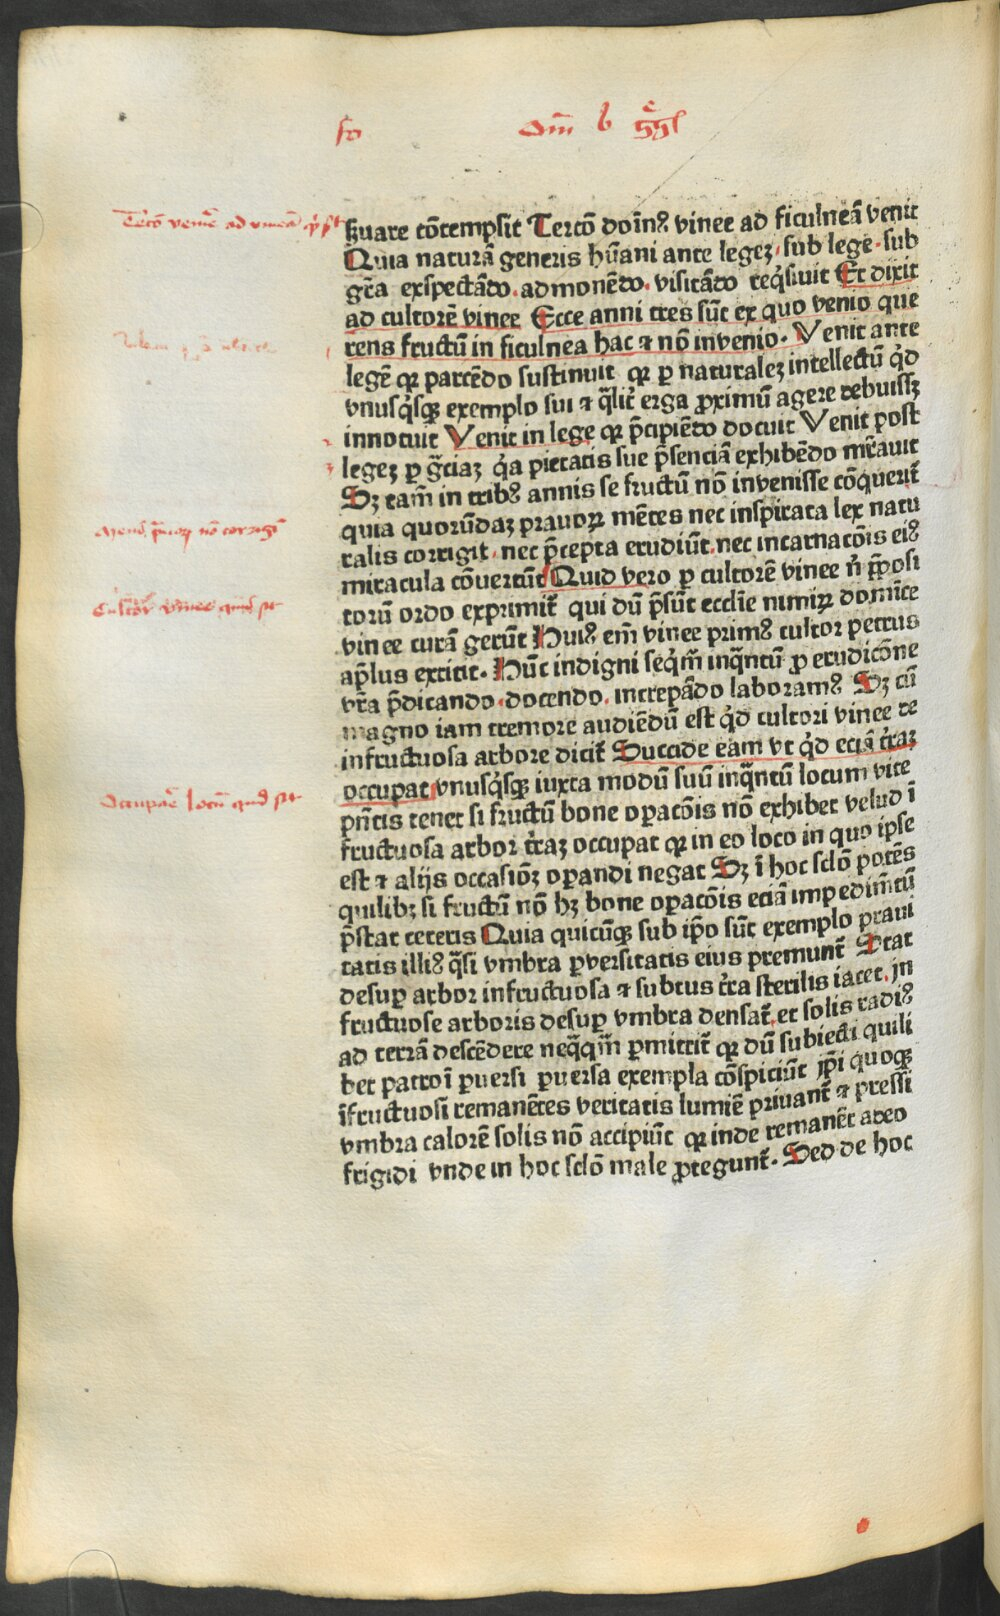 fo Om̄ b
ẜuare cōtempsit Tercō doīnꝰ vinee ad ficulneā venit
Quia naturā generis hūani ante legeꝫ · sub lege · sub
gr̄a exspectādo · admonēdo · visitādo req̇siuit Et dixit
ad cultorē vinee Ecce anni tres sūt ex quo venio que
rens fructū in ficulnea hac ⁊ nō invenio · Venit ante
legē qꝛ parcēdo sustinuit qꝛ ꝑ naturaleꝫ intellectū q̇d
vnusq̇sqꝫ exemplo sui ⁊ q̄lit̄ erga ꝓximū agere debuissꝫ
innotuit Venit in lege qꝛ p̄cipiēdo docuit Venit post
legeꝫ ꝑ gr̄ciaꝫ q̇a pietatis sue p̄senciā exhibēdo mr̄auit
Sꝫ tam̄ in tribꝰ annis se fructū nō invenisse cōquerit̄
quia quorūdaꝫ prauoꝝ mētes nec inspirata lex natu
ralis corrigit · nec p̄cepta erudiūt · nec incarnacōis eiꝰ
miracula cōuertūt Quid vero ꝑ cultorē vinee n̄ p̄posi
torū ordo exprimit̄ qui dū p̄sūt eccl̄ie nimiꝝ domīce
vinee curā gerūt Huiꝰ em̄ vinee primꝰ cultor petrus
apl̄us extitit · Hūc indigni seq̇m̄ inq̄ntū ꝓ erudicōne
vr̄a p̄dicando · docendo · increpādo laboramꝰ Sꝫ cū
magno iam tremore audiēdū est q̇d cultori vinee de
infructuosa arbore dicit̄ Succide eam vt q̇d eciā t̄raꝫ
occupat vnusq̇sqꝫ iuxta modū suū inq̄ntū locum vite
pn̄tis tenet si fructū bone oꝑacōis nō exhibet velud ī
fructuosa arbor t̄raꝫ occupat qꝛ in eo loco in quo ipse
est ⁊ alijs occasiōꝫ oꝑandi negat Sꝫ ī hoc sclō potēs
quilibꝫ si fructū nō hꝫ bone oꝑacōis eciā impedimētū
p̄stat ceteris Quia quicūqꝫ sub ip̄o sūt exemplo praui
tatis illiꝰ q̄si vmbra ꝑversitatis eius premunt̄ Stat
desuꝑ arbor infructuosa ⁊ subtus t̄ra sterilis iacet · jn
fructuose arboris desuꝑ vmbra densat̄ · et solis radiꝰ
ad terrā descēdere neq̄q̄m ꝑmittit̄ qꝛ dū subiecti quili
bet patroī ꝑuersi ꝑuersa exempla cōspiciūt jpī quoqꝫ
īfructuosi remanētes veritatis lumīe priuant̄ ⁊ pressi
vmbra calorē solis nō accipiūt qꝛ inde remanēt adeo
frigidi vnde in hoc sclō male ꝓtegunt̄ · Sed de hoc
Cultor vinee quid sit
Occupar̄ locū quid sit